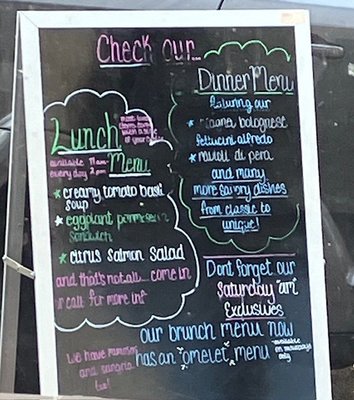 Check our...
Lunch
Menu
available 11am-
every day 2pm
most lunch
items come
with a side
of your choice
creamy tomato basil
soup
eggplant parmesan
sandwich
citrus Salmon Salad
and that's not all... come in
or call for more info
We have mimosas
and sangria
too!
Dinner Menu
featuring our
bolognese
fettucini alfredo
ravioli di pera
and many
more savory dishes
from classic to
unique!
Dont forget our
Saturday am
Exclusives
our brunch menu now
has an "omelet" menu
available
on saturdays
only